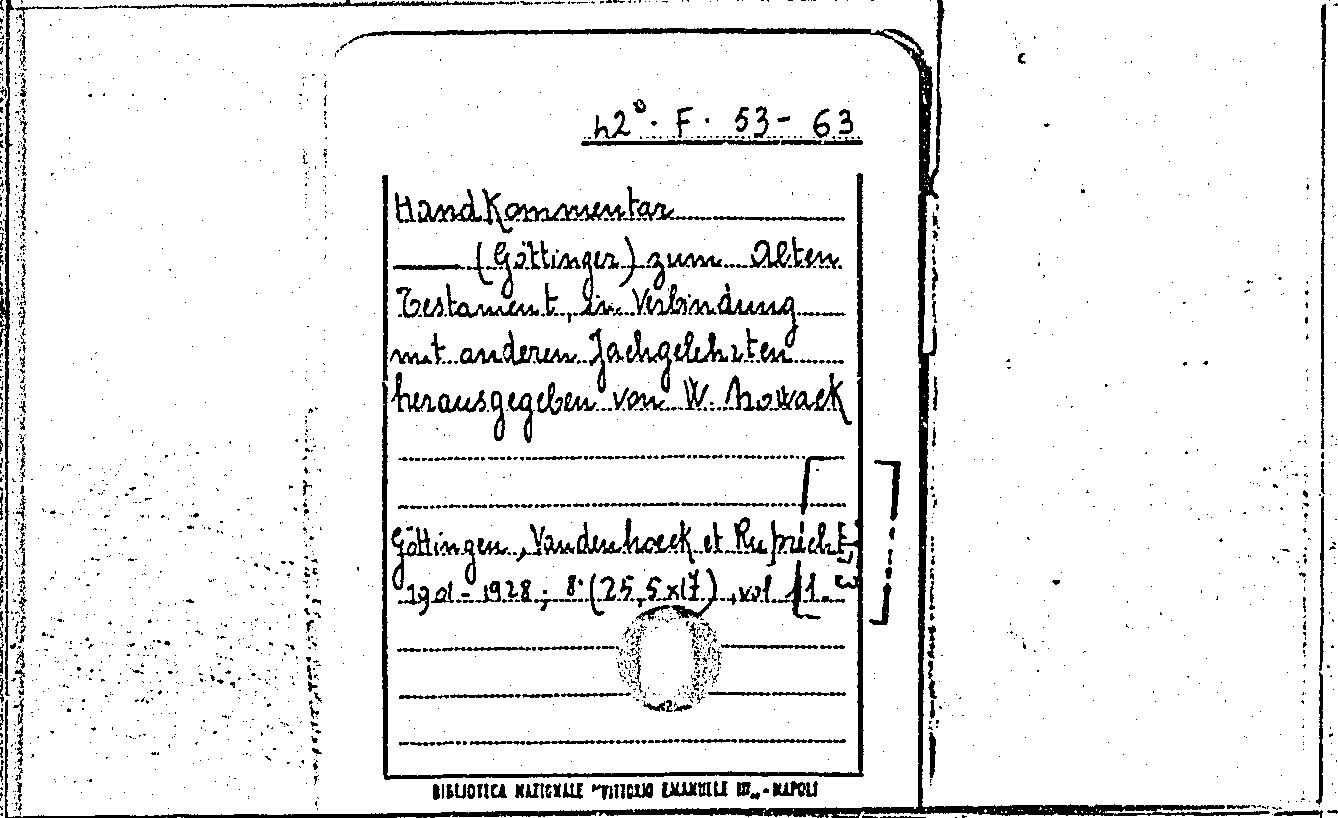 h2°. F. 53 - 63
Handkommentar
—— (Göttinger) zum Alten
Testament, in Verbindung
mit anderen Fachgelehrten
herausgegeben von W. Nowack
Göttingen, Vandenhoeck et Ruprecht,
1901 - 1928; 8° (25,5x17), vol 11.
BIBLIOTECA NAZIONALE "VITTORIO EMANUELE III" - NAPOLI